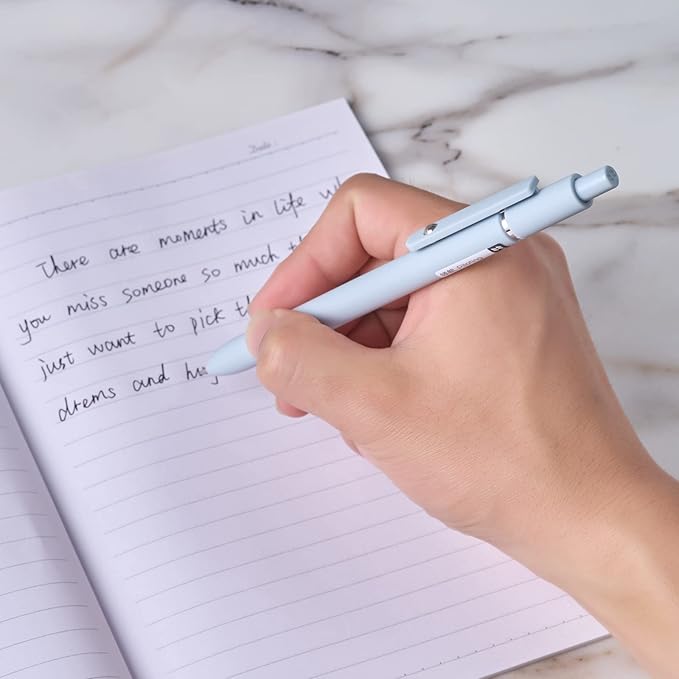 Date:
There are moments in life wh
you miss someone so much th
just want to pick th
drems and hug